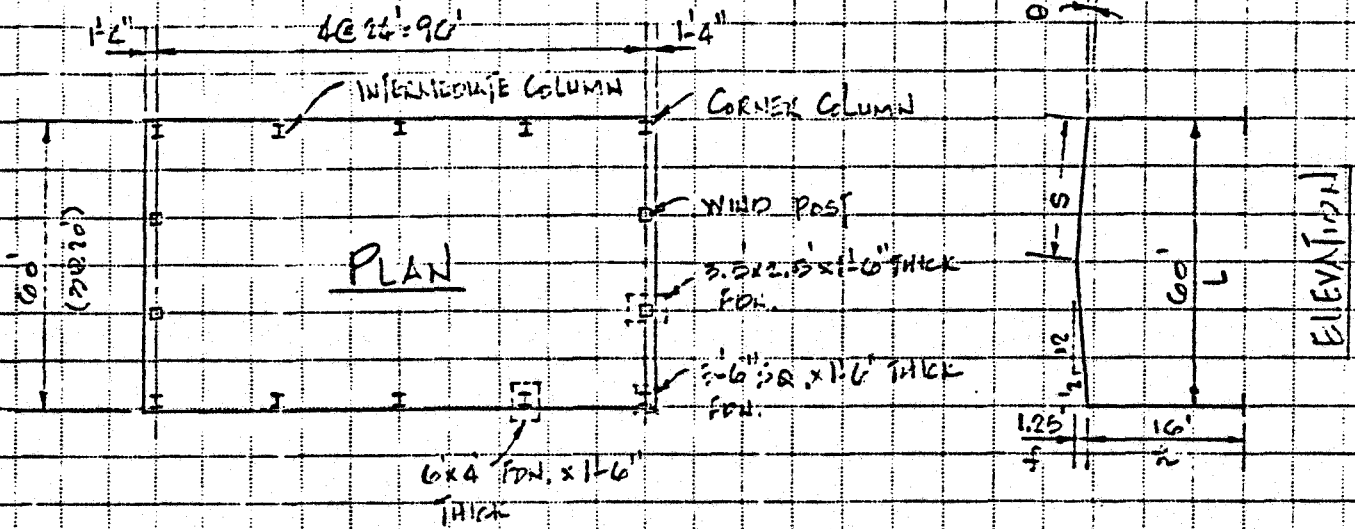 1'-4"
4@24'=96'
1'-4"
θ
INTERMEDIATE COLUMN
CORNER COLUMN
60'
(3@20')
PLAN
WIND POST
3.5x2.5x1'-6" THICK
FDN.
SQ. x1'-6" THICK
FDN.
6'x4' FDN. x 1'-6"
THICK
S
60'
L
12
1.25'
16'
ELEVATION